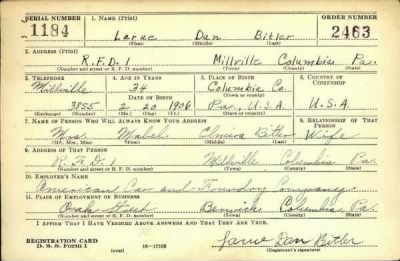 SERIAL NUMBER 1. NAME (Print) ORDER NUMBER
1184 Larue Dan Bitler 2463
(First) (Middle) (Last)
2. ADDRESS (Print)
R.F.D. 1 Millville Columbia Pa.
(Number and street or R. F. D. number) (Town) (County) (State)
3. TELEPHONE 4. AGE IN YEARS 5. PLACE OF BIRTH 6. COUNTRY OF CITIZENSHIP
Millville 34 Columbia Co.
DATE OF BIRTH (Town or county)
3855 2 20 1906 Pa., U.S.A. U.S.A.
(Exchange) (Number) (Mo.) (Day) (Yr.) (State or country)
7. NAME OF PERSON WHO WILL ALWAYS KNOW YOUR ADDRESS 8. RELATIONSHIP OF THAT PERSON
Mrs. Mabel Elmira Bitler Wife
(Mr., Mrs., Miss) (First) (Middle) (Last)
9. ADDRESS OF THAT PERSON
R.F.D. 1 Millville Columbia Pa.
(Number and street or R. F. D. number) (Town) (County) (State)
10. EMPLOYER'S NAME
American Car and Foundry Company
11. PLACE OF EMPLOYMENT OR BUSINESS
Oak Street Berwick Columbia Pa.
(Number and street or R. F. D. number) (Town) (County) (State)
I AFFIRM THAT I HAVE VERIFIED ABOVE ANSWERS AND THAT THEY ARE TRUE.
REGISTRATION CARD
D. S. S. Form 1 (over) 16—17105 Larue Dan Bitler
(Registrant's signature)